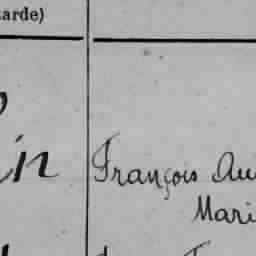 arde)
in François Au
Mari